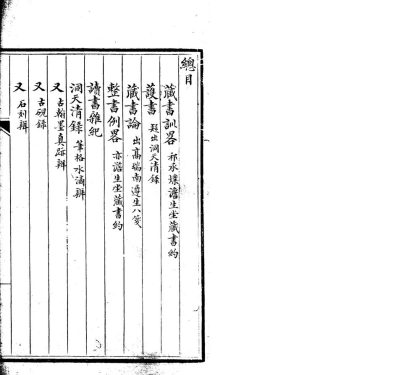 總目
藏書訓畧 祁承㸁澹生堂藏書約
護書 題出洞天清錄
藏書論 出高瑞南遵生八箋
整書例畧 亦澹生堂藏書約
讀書雜紀
洞天清錄 筆格水滴辨
又 古翰墨真跡辨
又 古硯錄
又 石刻辨